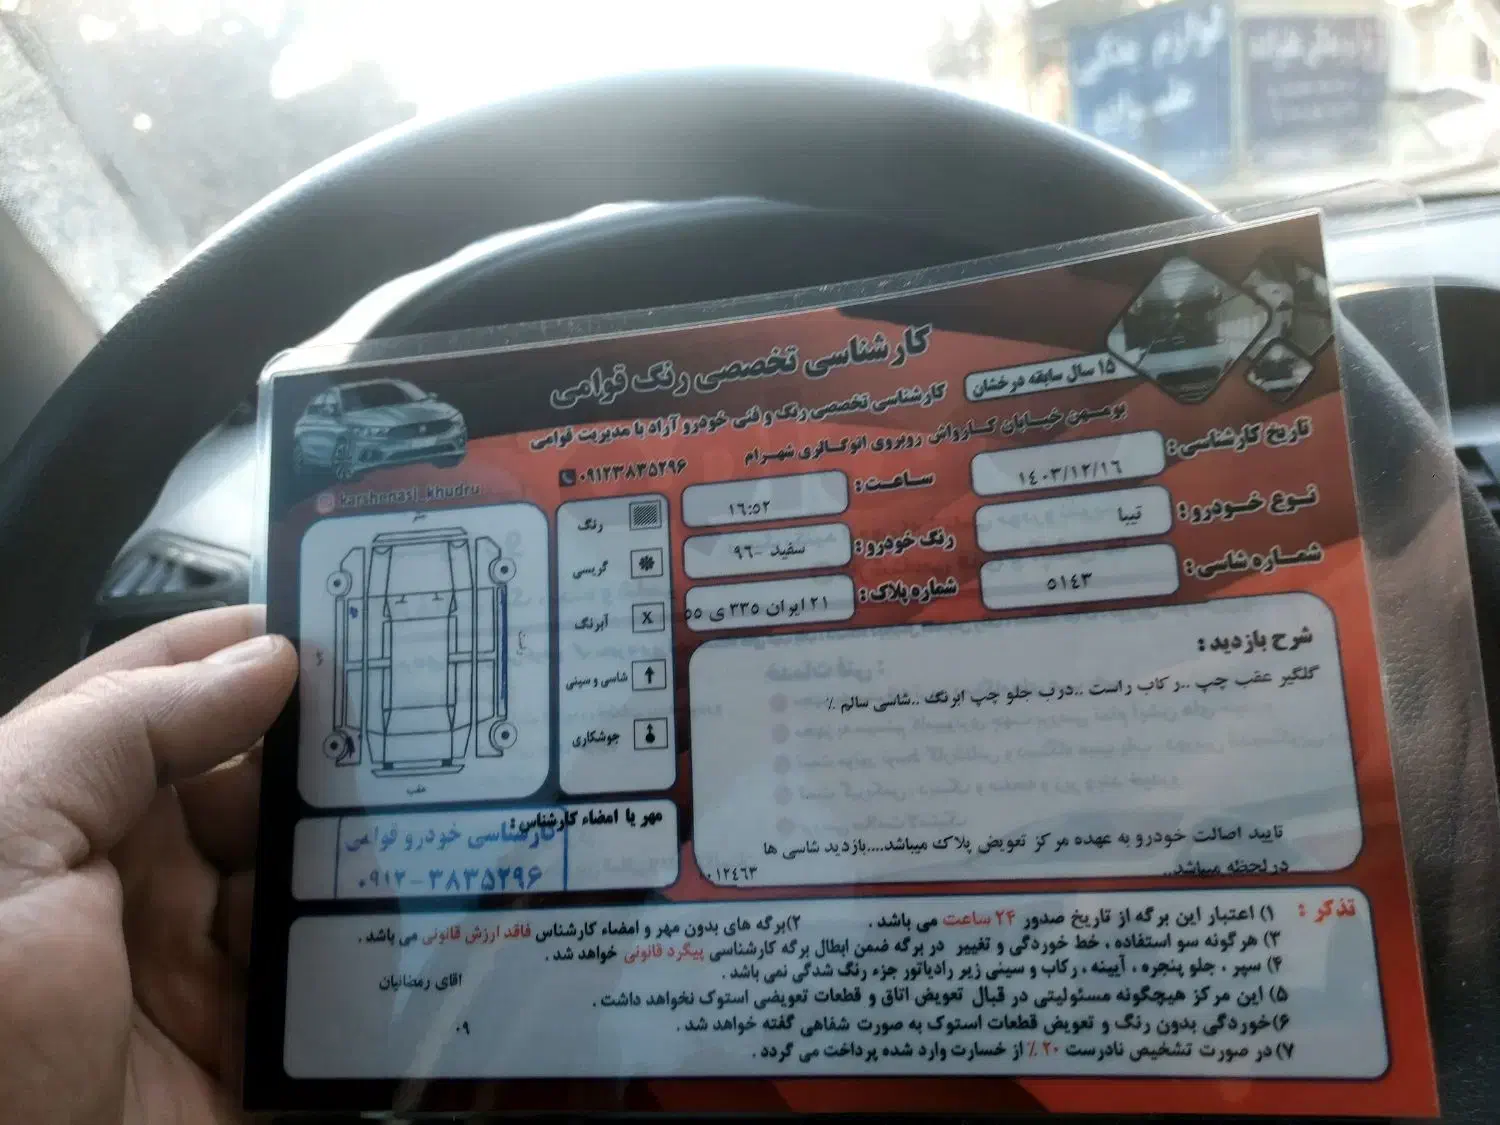 لوازم یدکی
کارشناسی تخصصی رنگ قوامی
۱۵ سال سابقه درخشان
کارشناسی تخصصی رنگ و فنی خودرو آراد با مدیریت قوامی
بومهن خیابان کارواش روبروی اتوگالری شهرام
۰۹۱۲۳۸۳۵۲۹۶
karshenasi_khudru
تاریخ کارشناسی : ۱۴۰۳/۱۲/۱۶
ساعت : ۱۶:۵۲
نوع خودرو : تیبا
رنگ خودرو : سفید -۹۶
شماره شاسی : ۵۱۴۳
شماره پلاک : ۲۱ ایران ۳۳۵ ی ۵۵
رنگ
گریسی
X آبرنگ
شاسی و سینی
جوشکاری
جلو
عقب
شرح بازدید :
گلگیر عقب چپ ..رکاب راست ..درب جلو چپ ابرنگ ..شاسی سالم ٪
تایید اصالت خودرو به عهده مرکز تعویض پلاک میباشد....بازدید شاسی ها
در لحظه میباشد..
۰۱۲۴۶۳
مهر یا امضاء کارشناس :
کارشناسی خودرو قوامی
۰۹۱۲-۳۸۳۵۲۹۶
تذکر :
۱) اعتبار این برگه از تاریخ صدور ۲۴ ساعت می باشد .
۲)برگه های بدون مهر و امضاء کارشناس فاقد ارزش قانونی می باشد .
۳) هرگونه سو استفاده ، خط خوردگی و تغییر در برگه ضمن ابطال برگه کارشناسی پیگرد قانونی خواهد شد .
۴) سپر ، جلو پنجره ، آیینه ، رکاب و سینی زیر رادیاتور جزء رنگ شدگی نمی باشد .
۵) این مرکز هیچگونه مسئولیتی در قبال تعویض اتاق و قطعات تعویضی استوک نخواهد داشت .
۶)خوردگی بدون رنگ و تعویض قطعات استوک به صورت شفاهی گفته خواهد شد .
۷) در صورت تشخیص نادرست ۲۰ ٪ از خسارت وارد شده پرداخت می گردد .
اقای رمضانیان
۰۹